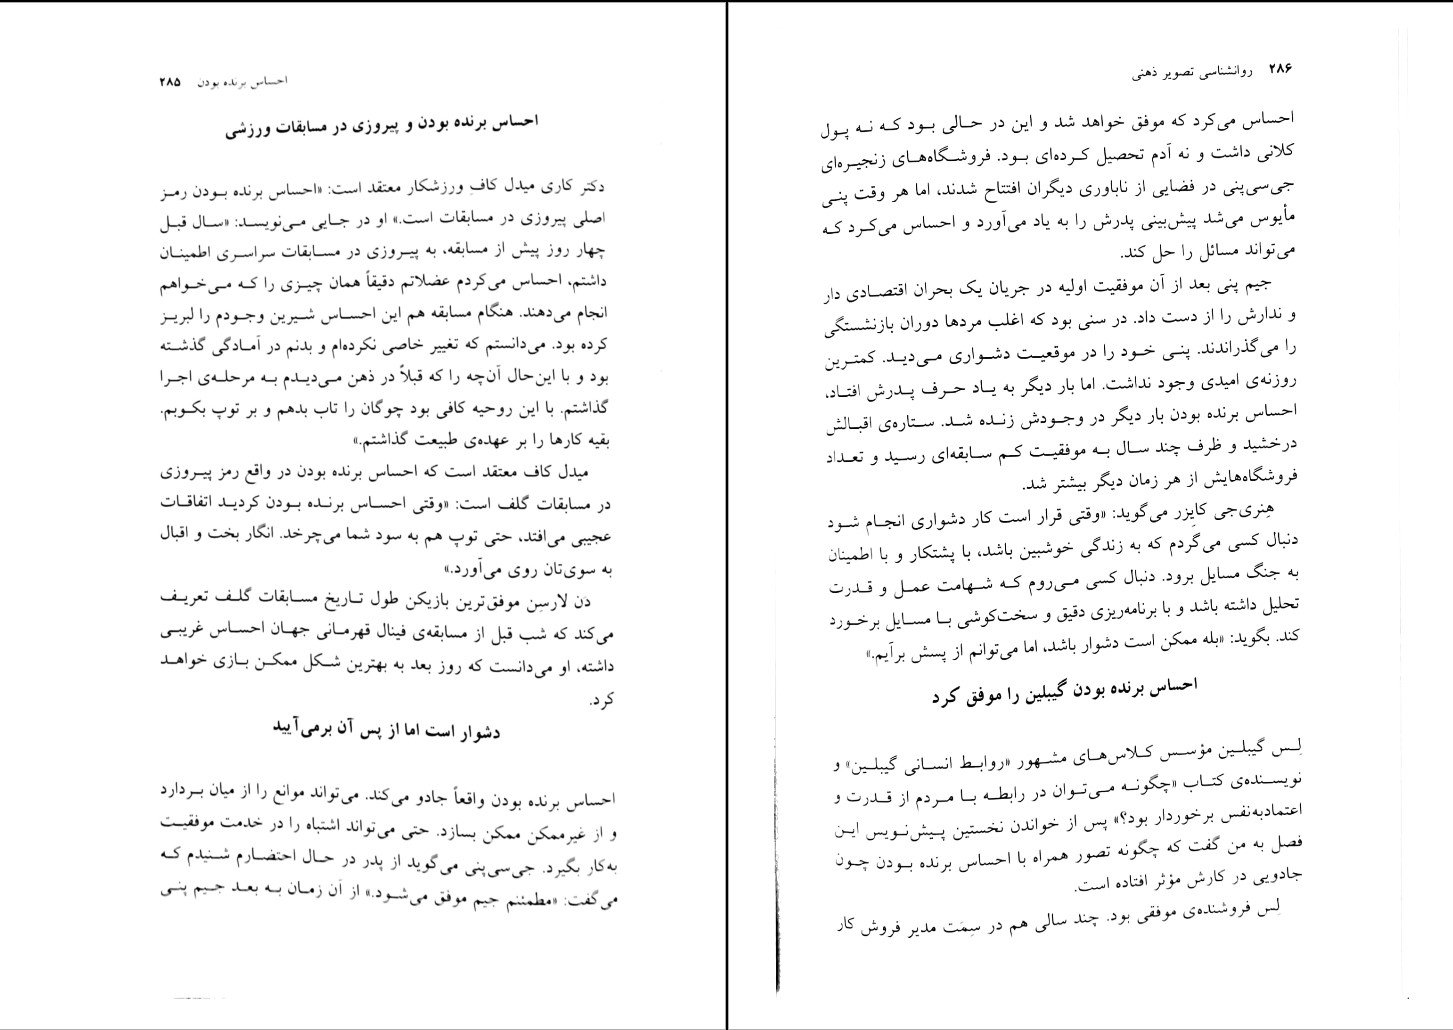 احساس برنده بودن ۲۸۵
احساس برنده بودن و پیروزی در مسابقات ورزشی
دکتر کاری میدل کافِ ورزشکار معتقد است: «احساس برنده بودن رمز
اصلی پیروزی در مسابقات است.» او در جایی می‌نویسد: «سال قبل
چهار روز پیش از مسابقه، به پیروزی در مسابقات سراسری اطمینان
داشتم، احساس می‌کردم عضلاتم دقیقاً همان چیزی را که می‌خواهم
انجام می‌دهند. هنگام مسابقه هم این احساس شیرین وجودم را لبریز
کرده بود. می‌دانستم که تغییر خاصی نکرده‌ام و بدنم در آمادگی گذشته
بود و با این‌حال آن‌چه را که قبلاً در ذهن می‌دیدم به مرحله‌ی اجرا
گذاشتم. با این روحیه کافی بود چوگان را تاب بدهم و بر توپ بکوبم.
بقیه کارها را بر عهده‌ی طبیعت گذاشتم.»
میدل کاف معتقد است که احساس برنده بودن در واقع رمز پیروزی
در مسابقات گلف است: «وقتی احساس برنده بودن کردید اتفاقات
عجیبی می‌افتد، حتی توپ هم به سود شما می‌چرخد. انگار بخت و اقبال
به سوی‌تان روی می‌آورد.»
دن لارسِن موفق‌ترین بازیکن طول تاریخ مسابقات گلف تعریف
می‌کند که شب قبل از مسابقه‌ی فینال قهرمانی جهان احساس غریبی
داشته، او می‌دانست که روز بعد به بهترین شکل ممکن بازی خواهد
کرد.
دشوار است اما از پس آن برمی‌آیید
احساس برنده بودن واقعاً جادو می‌کند. می‌تواند موانع را از میان بردارد
و از غیرممکن ممکن بسازد. حتی می‌تواند اشتباه را در خدمت موفقیت
به‌کار بگیرد. جی‌سی‌پنی می‌گوید از پدر در حال احتضارم شنیدم که
می‌گفت: «مطمئنم جیم موفق می‌شود.» از آن زمان به بعد جیم پنی
۲۸۶ روانشناسی تصویر ذهنی
احساس می‌کرد که موفق خواهد شد و این در حالی بود که نه پول
کلانی داشت و نه آدم تحصیل کرده‌ای بود. فروشگاه‌های زنجیره‌ای
جی‌سی‌پنی در فضایی از ناباوری دیگران افتتاح شدند، اما هر وقت پنی
مأیوس می‌شد پیش‌بینی پدرش را به یاد می‌آورد و احساس می‌کرد که
می‌تواند مسائل را حل کند.
جیم پنی بعد از آن موفقیت اولیه در جریان یک بحران اقتصادی دار
و ندارش را از دست داد. در سنی بود که اغلب مردها دوران بازنشستگی
را می‌گذراندند. پنی خود را در موقعیت دشواری می‌دید. کمترین
روزنه‌ی امیدی وجود نداشت. اما بار دیگر به یاد حرف پدرش افتاد،
احساس برنده بودن بار دیگر در وجودش زنده شد. ستاره‌ی اقبالش
درخشید و ظرف چند سال به موفقیت کم سابقه‌ای رسید و تعداد
فروشگاه‌هایش از هر زمان دیگر بیشتر شد.
هِنری‌جی کایزر می‌گوید: «وقتی قرار است کار دشواری انجام شود
دنبال کسی می‌گردم که به زندگی خوشبین باشد، با پشتکار و با اطمینان
به جنگ مسایل برود. دنبال کسی می‌روم که شهامت عمل و قدرت
تحلیل داشته باشد و با برنامه‌ریزی دقیق و سخت‌کوشی با مسایل برخورد
کند. بگوید: «بله ممکن است دشوار باشد، اما می‌توانم از پسش برآیم.»
احساس برنده بودن گیبلین را موفق کرد
لِس گیبلین مؤسس کلاس‌های مشهور «روابط انسانی گیبلین» و
نویسنده‌ی کتاب «چگونه می‌توان در رابطه با مردم از قدرت و
اعتمادبه‌نفس برخوردار بود؟» پس از خواندن نخستین پیش‌نویس این
فصل به من گفت که چگونه تصور همراه با احساس برنده بودن چون
جادویی در کارش مؤثر افتاده است.
لِس فروشنده‌ی موفقی بود. چند سالی هم در سِمَت مدیر فروش کار